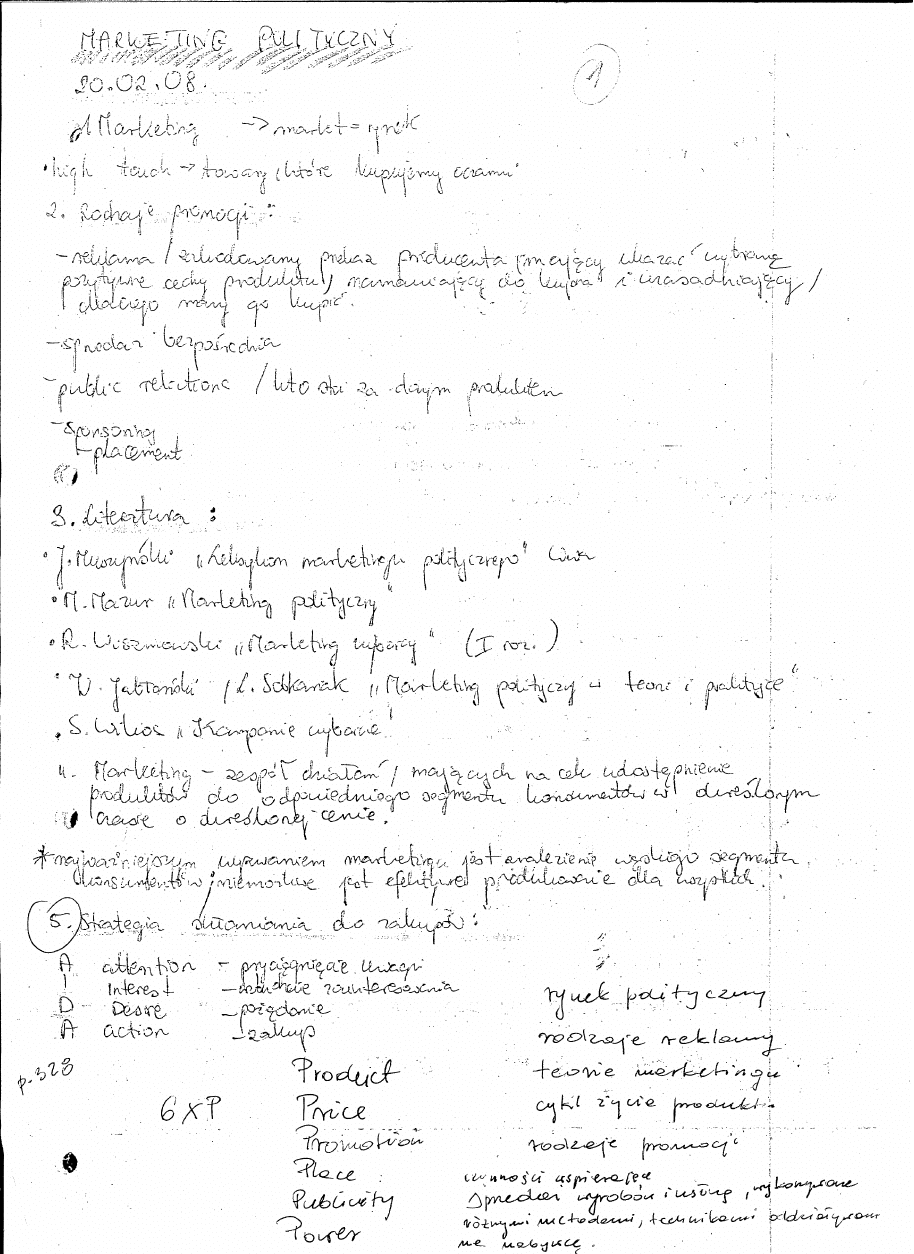 MARKETING POLITYCZNY
20.02.08.
1
1 Marketing -> market = rynek
• high touch -> towary, które kupujemy oczami
2. Rodzaje promocji :
- reklama / zakodowany przekaz producenta, mający ukazać wybrane
pozytywne cechy produktu, namawiający do kupna i uzasadniający /
dlaczego mamy go kupić.
- sprzedaż bezpośrednia
- public relations / kto stoi za danym produktem
- sponsoring
placement
3. Literatura :
• J. Muszyński „Leksykon marketingu politycznego"
• M. Mazur „Marketing polityczny"
• R. Wiszniowski „Marketing wyborczy" (I roz.)
• W. Jabłoński, L. Sobkowiak „Marketing polityczny w teorii i praktyce"
• S. Wilkos „Kampanie wyborcze"
4. Marketing - zespół działań / mających na celu udostępnienie
produktów do odpowiedniego segmentu konsumentów w określonym
czasie o określonej cenie.
* najważniejszym wyzwaniem marketingu jest znalezienie wąskiego segmentu
konsumentów, niemożliwe jest efektywne produkowanie dla wszystkich.
5. Strategia skłaniania do zakupów :
A attention - przyciągnięcie uwagi
I Interest - zainteresowania
D Desire - pożądanie
A action - zakup
rynek polityczny
rodzaje reklamy
p. 328
Product teorie marketingu
6 x P Price cykl życia produktu
Promotion rodzaje promocji
Place czynności wspierające
Publicity sprzedaż wyrobów i usług, wykonywane
Power różnymi metodami, technikami oddziaływania
na nabywcę.